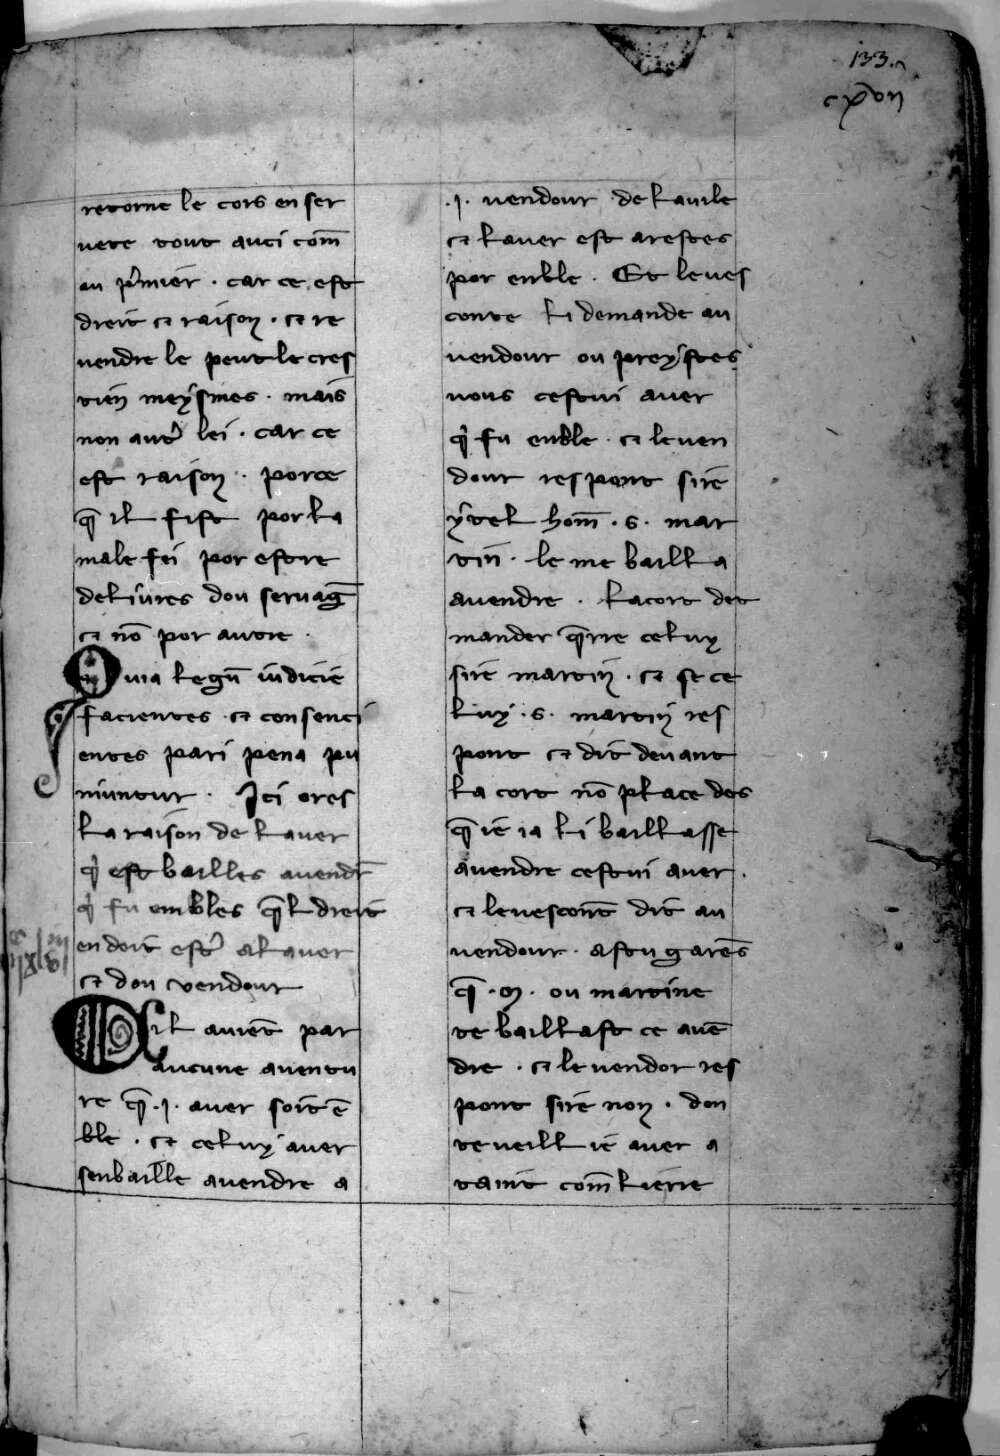 133.
cxxvii
retorne le cors en ser
vete tout auci com̄
au p̄mier . car ce est
dreit et raison . et re
vendre le peut le cres
tien meysmes . mais
non aut̉ lei . car ce
est raison . porce
q̄ il fist por la
male fei por estre
delivres dou servaḡ
et nō por autre .
Quia legū iudiciē
facientes . et consenci
entes pari pena pu
niuntur . Ici ores
la raison de laver
q̉ est bailles avendr̄
q̉ fu embles q̄l dreit
en doit est̉ al aver
et dou vendour
Sil avient par
aucune aventu
re q̄ .j. aver soit ē
ble . et celuy aver
senbaille avendre a
.j. vendour de la vile
et laver est arestes
por enble . Et leves
conte li demande au
vendour ou preystes
vous cestui aver
q̉ fu enble . et le ven
dour respont sire
ytel hom̄ . s . mar
tin . le me bailla
avendre . la cort det
mander q̄rre celuy
sire martin . et se ce
luy . s . martin res
pont et dit devant
la cort nō place des
q̄ ie ia li baillasse
avendre cestui aver .
et levescont̄ dit au
vendour . as tu garēs
q̄ . m . ou martine
te baillast ce avē
dre . et le vendor res
pont sire non . don
te veill ie aver a
taint com̄ lierre